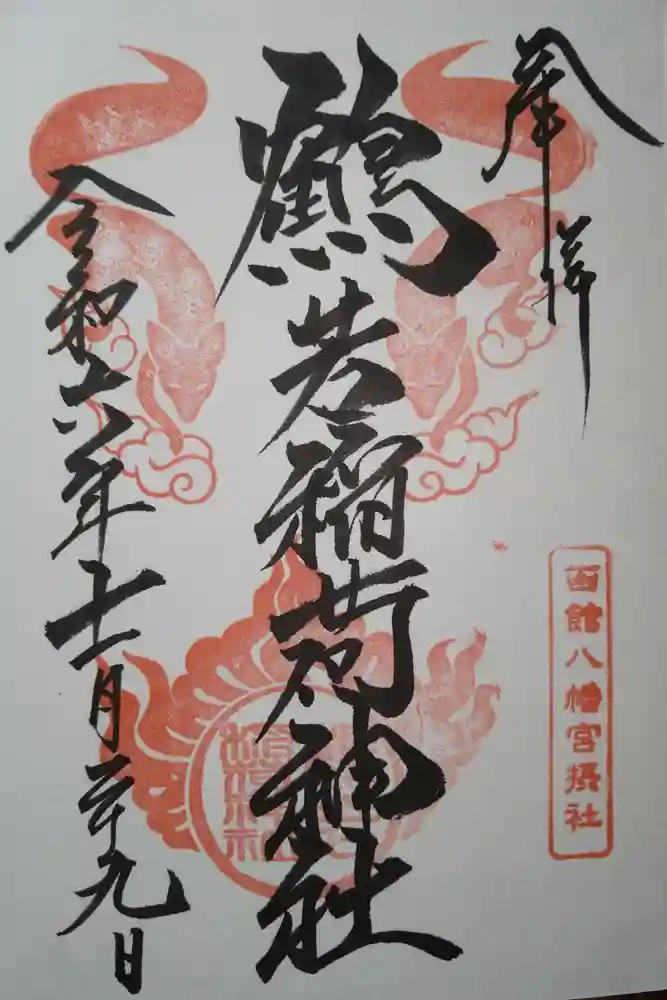 奉拝
函館八幡宮摂社
鶴若稲荷神社
令和六年十一月二十九日